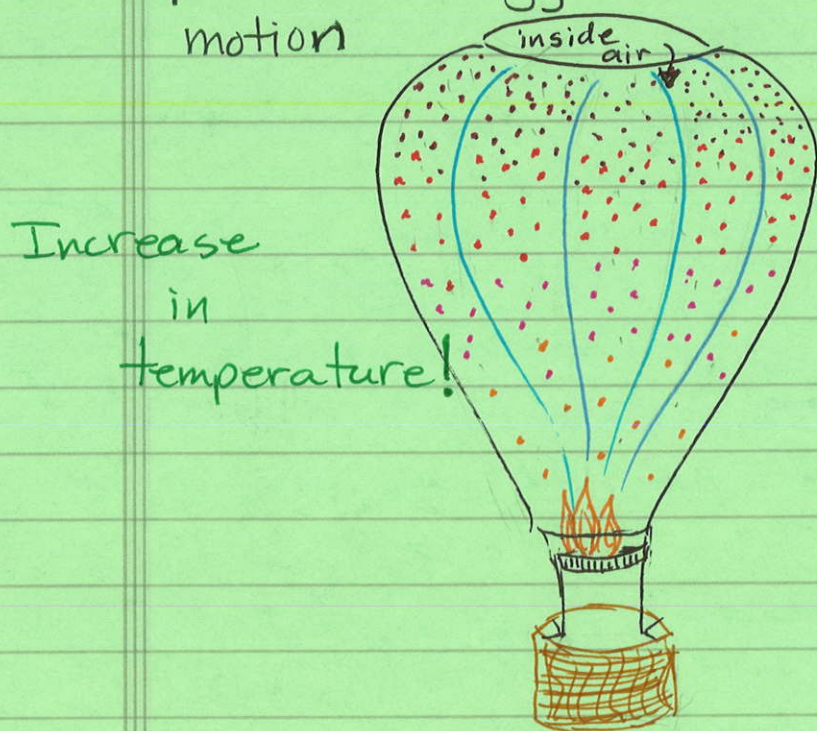 motion
inside
air
Increase
in
temperature!